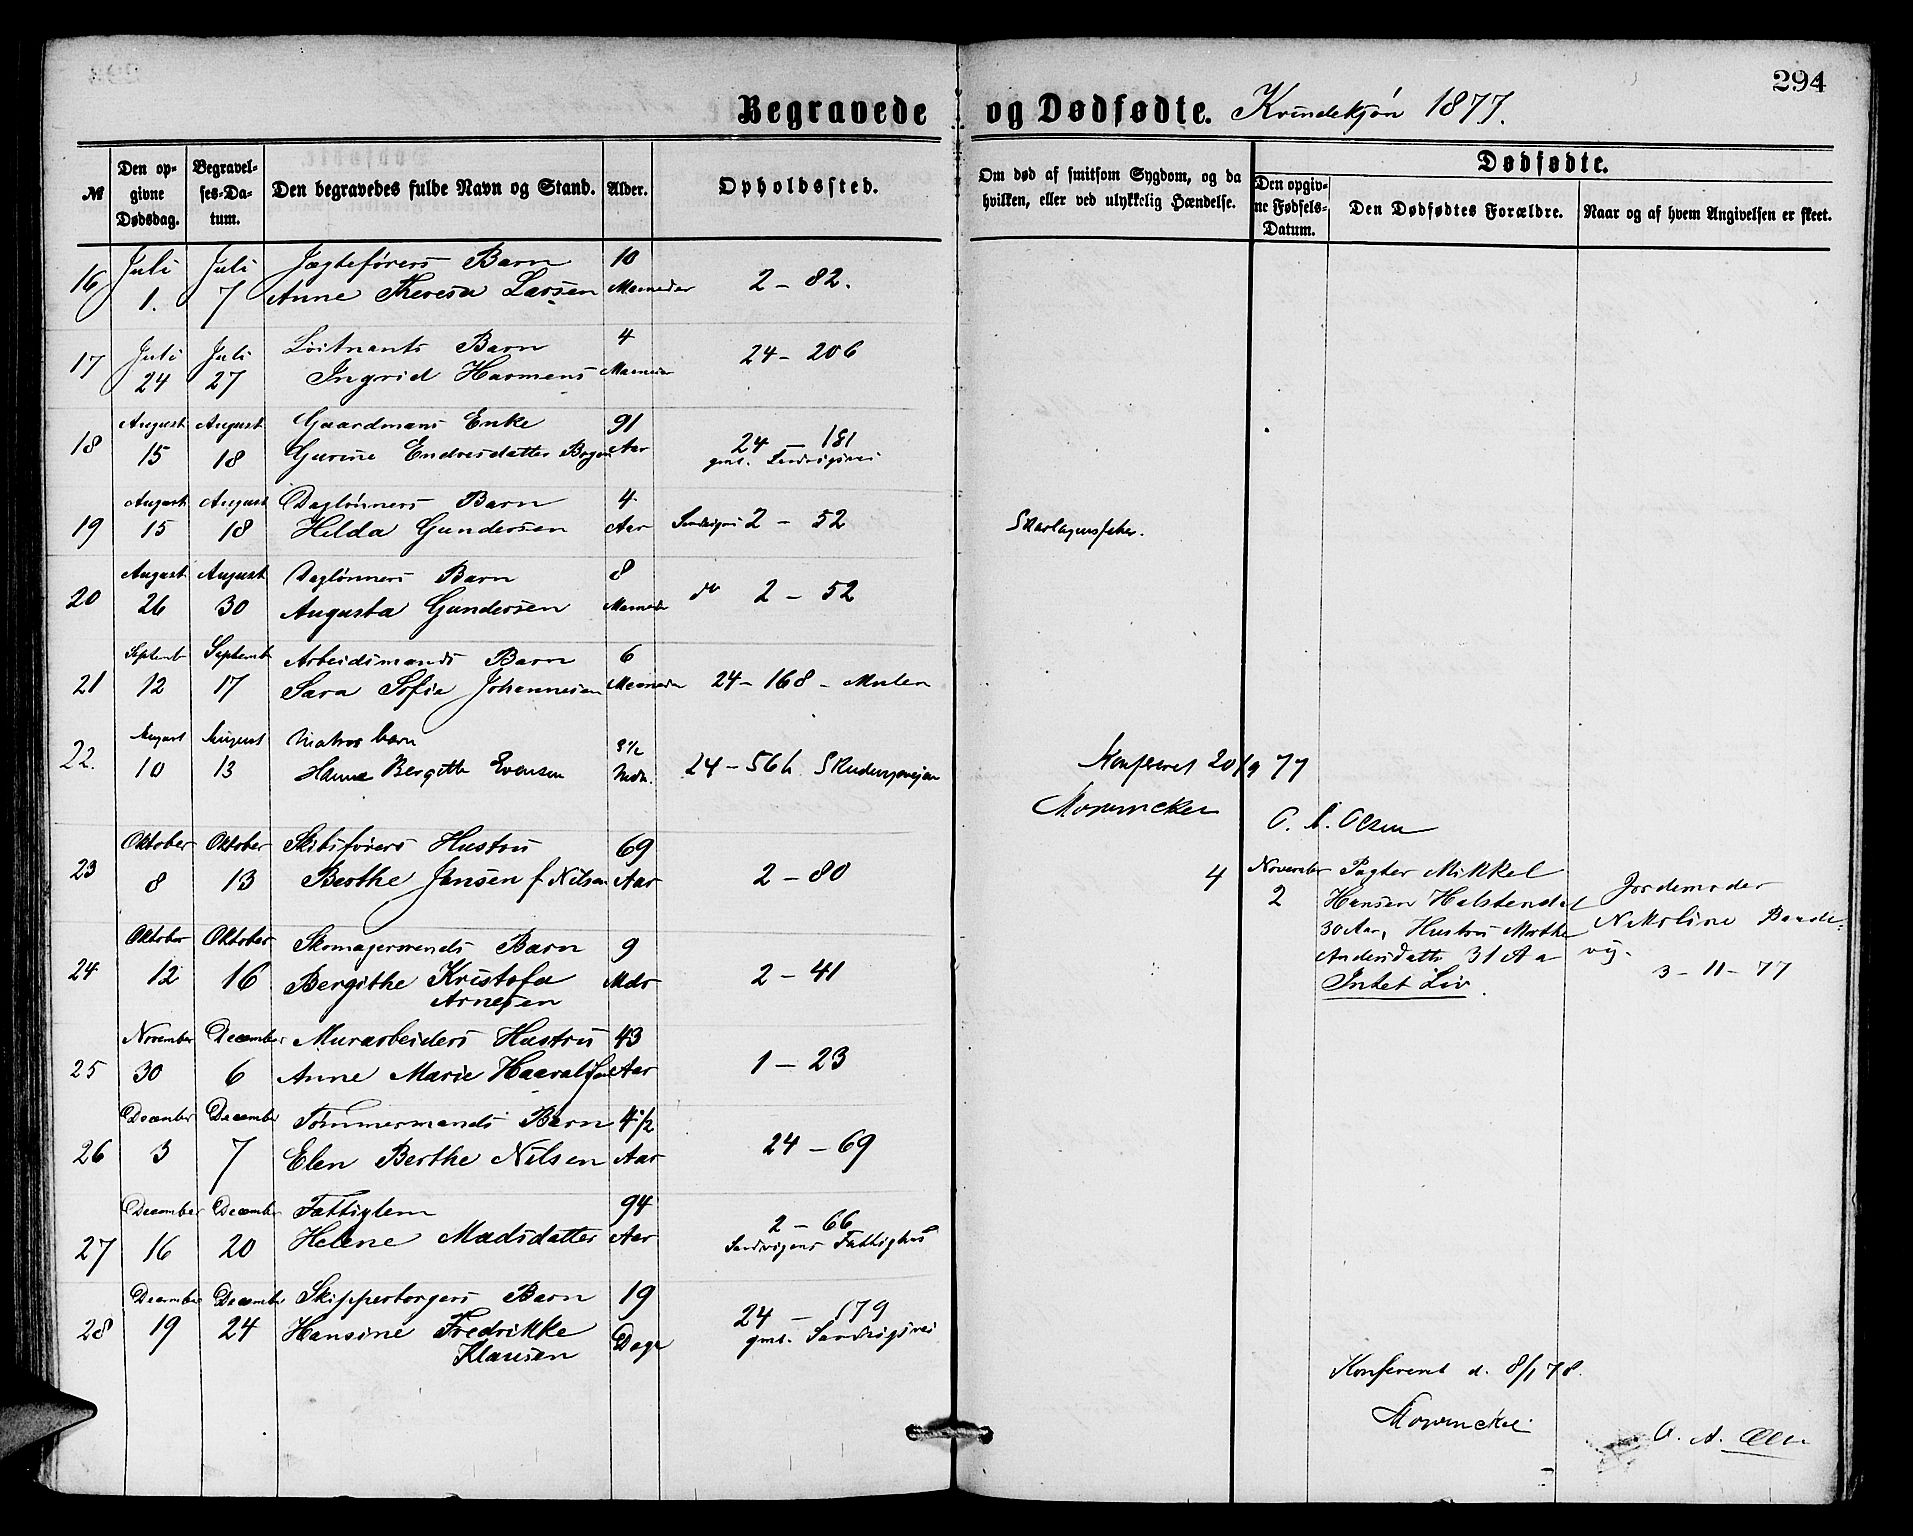 294
Begravede og Dødfødte. Kvindekjøn 1877.
№ Den opgivne Dødsdag. Begravelses-Datum. Den begravedes fulde Navn og Stand. Alder. Opholdssted. Om død af smitsom Sygdom, og da hvilken, eller ved ulykkelig Hændelse. Dødfødte. Den opgivne Fødsels-Datum. Den Dødfødtes Forældre. Naar og af hvem Angivelsen er skeet.
Juli Juli Jægteførers Barn 10
16 1. 7 Anne Theresa Larsen Maaneder 2 - 82.
Juli Juli Løitnants Barn 4
17 24 27 Ingrid Harmens Maaneder 24 - 206
August August Gaardmans Enke 91
18 15 18 Gurine Endresdatter Aar 24 - 181
gml. Sandvigsvei
August August Daglønners Barn 4
19 15 18 Hilda Gundersen Aar 2 - 52 Skarlagensfeber.
August August Daglønners Barn 8
20 26 30 Augusta Gundersen Maaneder do 2 - 52
Septembr Septembr Arbeidsmands Barn 6
21 12 17 Sara Sofia Johannesen Maaneder 24 - 168 - Mulen
August August Matros barn 8 1/2
22. 10 13 Hanna Bergitte Evensen Mdr. 24 - 56 b.
Konfereret 20/9 77
Mowinckel
O. A. Olsen
Oktober Oktober Skibsførers Hustru 69
23 8 13 Berthe Jensen f Nilsen Aar 2 - 80
4 November Pagter Mikkel
2 Hansen
30 Aar, Hustru Marthe
Andersdatter 31 Aar
Intet Liv.
Jordemoder
Nikoline Baade-
vig.
3 - 11 - 77
Oktober Oktober Skomagersvends Barn 9
24 12 16 Bergithe Kristofa Mdr 2 - 41
Arnesen
November December Murarbeiders Hustru 43
25 30 6 Anne Marie Aar 1 - 23
December December Tømmermands Barn 4 1/2
26 3 7 Elen Berthe Nilsen Aar 24 - 69
December December Fattiglem 94
27 16 20 Helene Madsdatter Aar 2 - 66
Sandvigens Fattighus
December December Skipperborgers Barn 19
28 19 24 Hansine Fredrikke Dage 24 - 179
Klausen gml. Sandvigsvei
Konfereret d. 8/1 78.
Mowinckel
O. A. Olsen